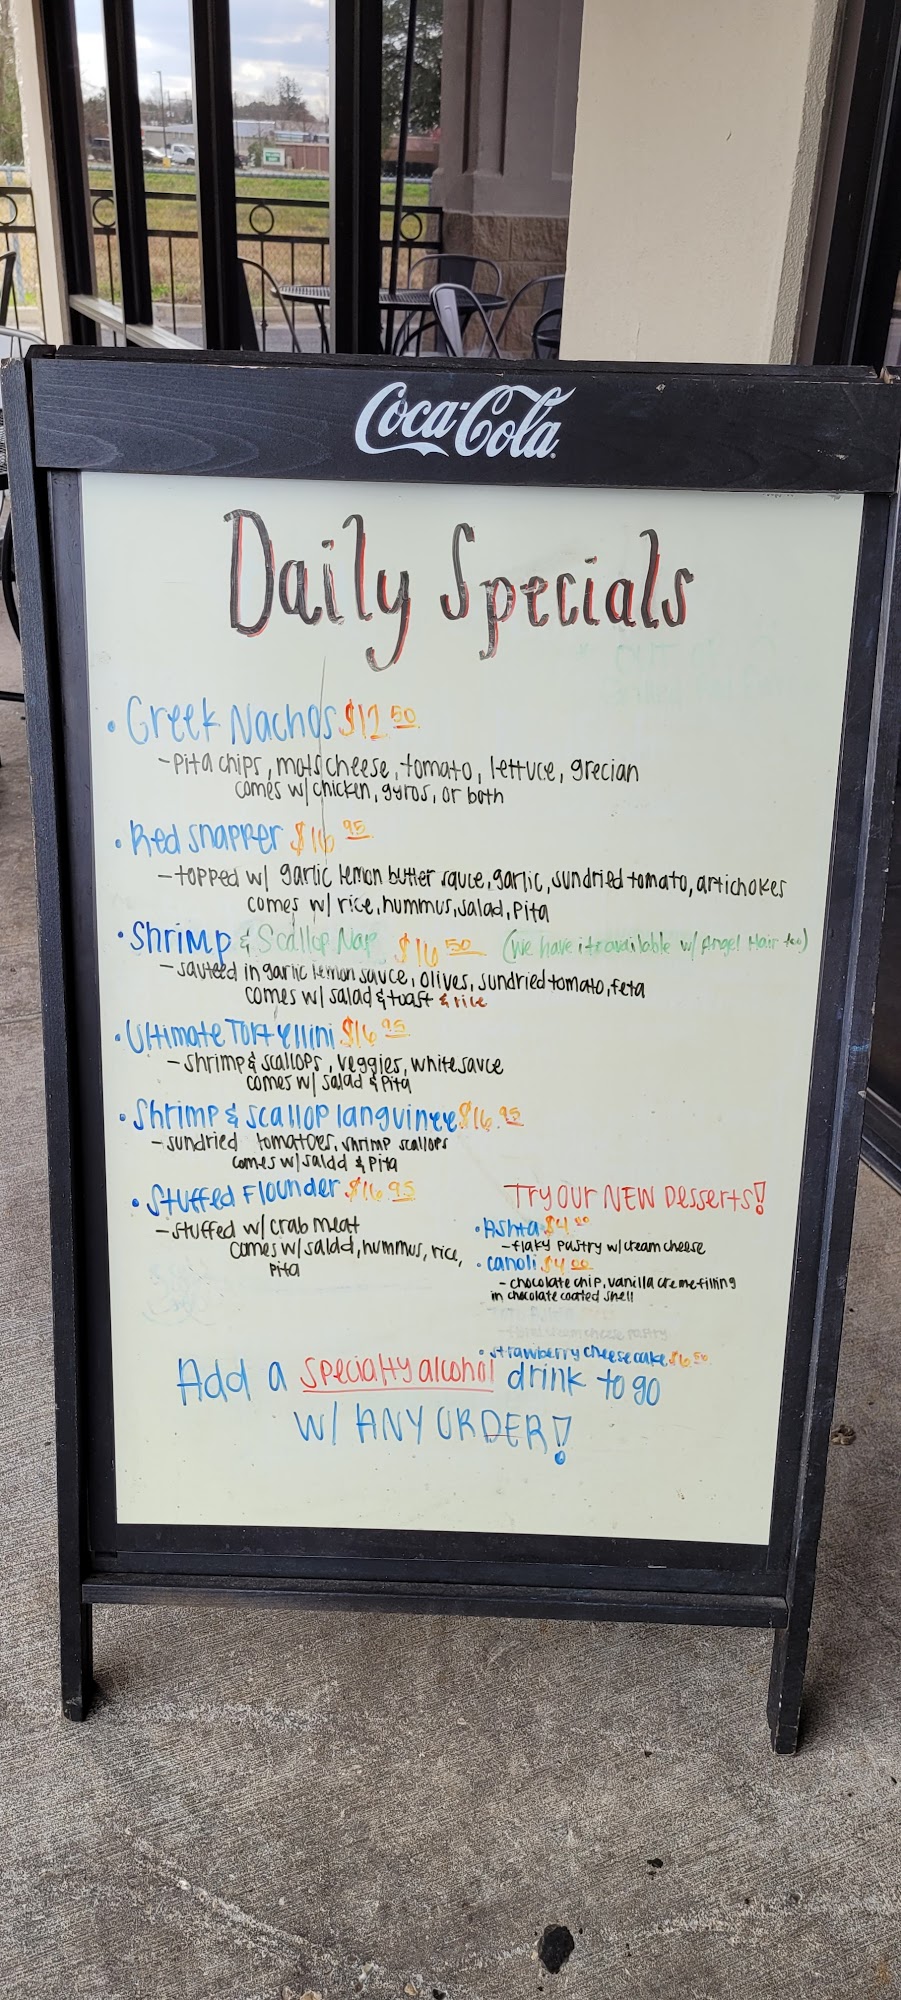 Coca-Cola
Daily Specials
• Greek Nachos $12.50
- Pita chips, mots cheese, tomato, lettuce, grecian
comes w/ chicken, gyros, or both
• Red snapper $16.95
- topped w/ garlic lemon butter sauce, garlic, sundried tomato, artichokes
comes w/ rice, hummus, salad, pita
• Shrimp & Scallop $16.50 (we have it available w/ Angel Hair too)
- sauteed in garlic lemon sauce, olives, sundried tomato, feta
comes w/ salad & toast & rice
• Ultimate Tortellini $16.95
- shrimp & scallops, veggies, white sauce
comes w/ salad & pita
• Shrimp & scallop languinee $16.95
- sundried tomatoes, shrimp scallops
comes w/ salad & pita
• Stuffed Flounder $16.95
- stuffed w/ crab meat
comes w/ salad, hummus, rice,
pita
Try our NEW Desserts!
• Ashta $4.00
- flaky pastry w/ cream cheese
• canoli $4.00
- chocolate chip, vanilla creme filling
in chocolate coated shell
• strawberry cheesecake $6.50
Add a specialty alcohol drink to go
w/ ANY ORDER!